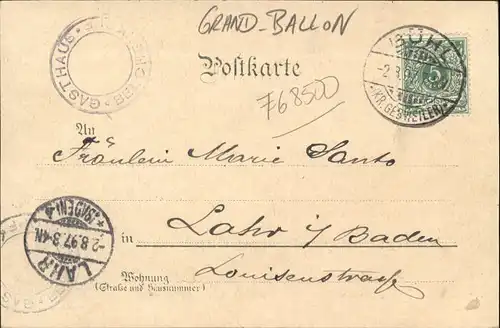 GRAND-BALLON
GASTHAUS
Postkarte
F68500
BÜHL
-2.8.97
(KR. GEBWEILER)
5
An
Fräulein Marie Santo
in Lahr i/ Baden
Louisenstrasse
Wohnung
(Straße und Hausnummer)
LAHR
-2.8.97.8-4N.
*(BADEN) 4